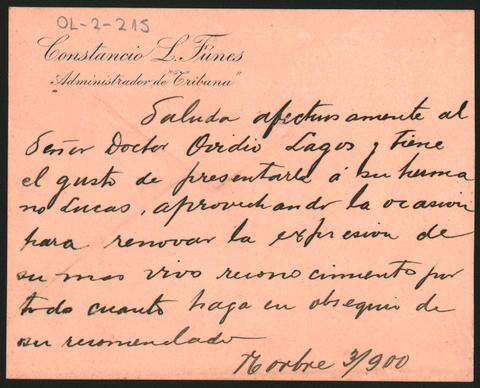 OL-2-215
Constancio L. Fúnes
Administrador de "Tribuna"
Saluda afectuosamente al
Señor Doctor Ovidio Lagos y tiene
el gusto de presentarle á su herma
no Lucas, aprovechando la ocasion
para renovar la expresion de
su mas vivo reconocimiento por
todo cuanto haga en obsequio de
su recomendado
Novbre 3/900